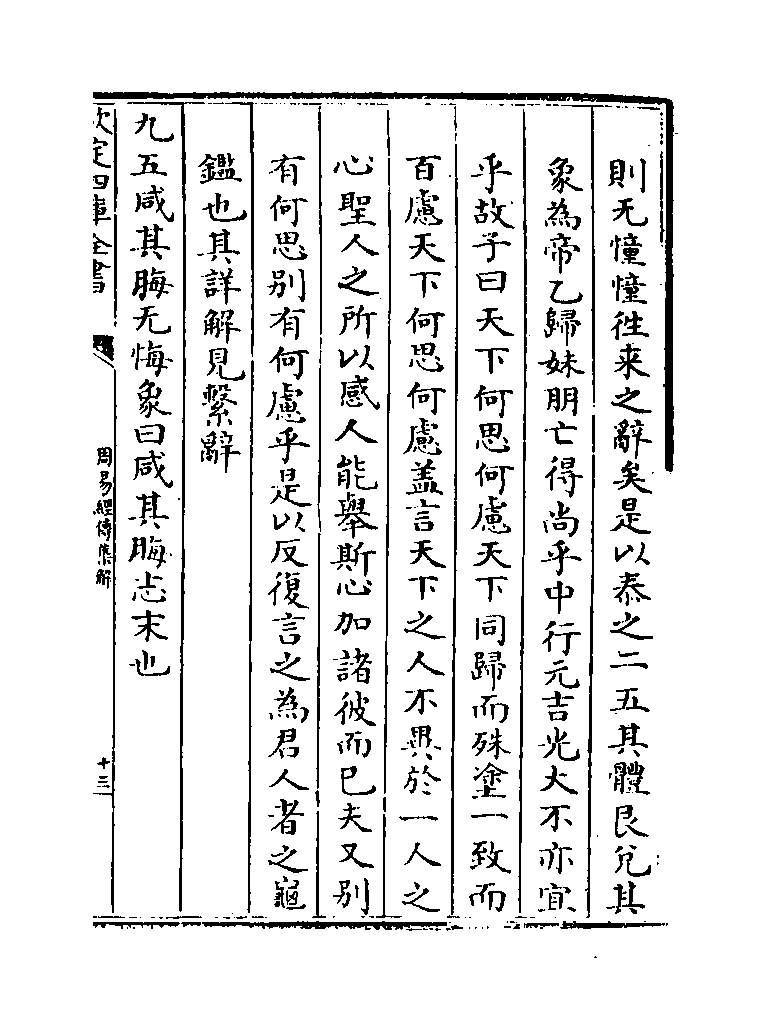 則无憧憧徃来之辭矣是以泰之二五其體艮兊其
象為帝乙歸妹朋亡得尚乎中行元吉光大不亦宜
乎故子曰天下何思何慮天下同歸而殊塗一致而
百慮天下何思何慮盖言天下之人不異於一人之
心聖人之所以感人能舉斯心加諸彼而已夫又别
有何思别有何慮乎是以反復言之為君人者之龜
鑑也其詳解見繫辭
九五咸其脢无悔象曰咸其脢志末也
欽定四庫全書
周易經傳集解
十三